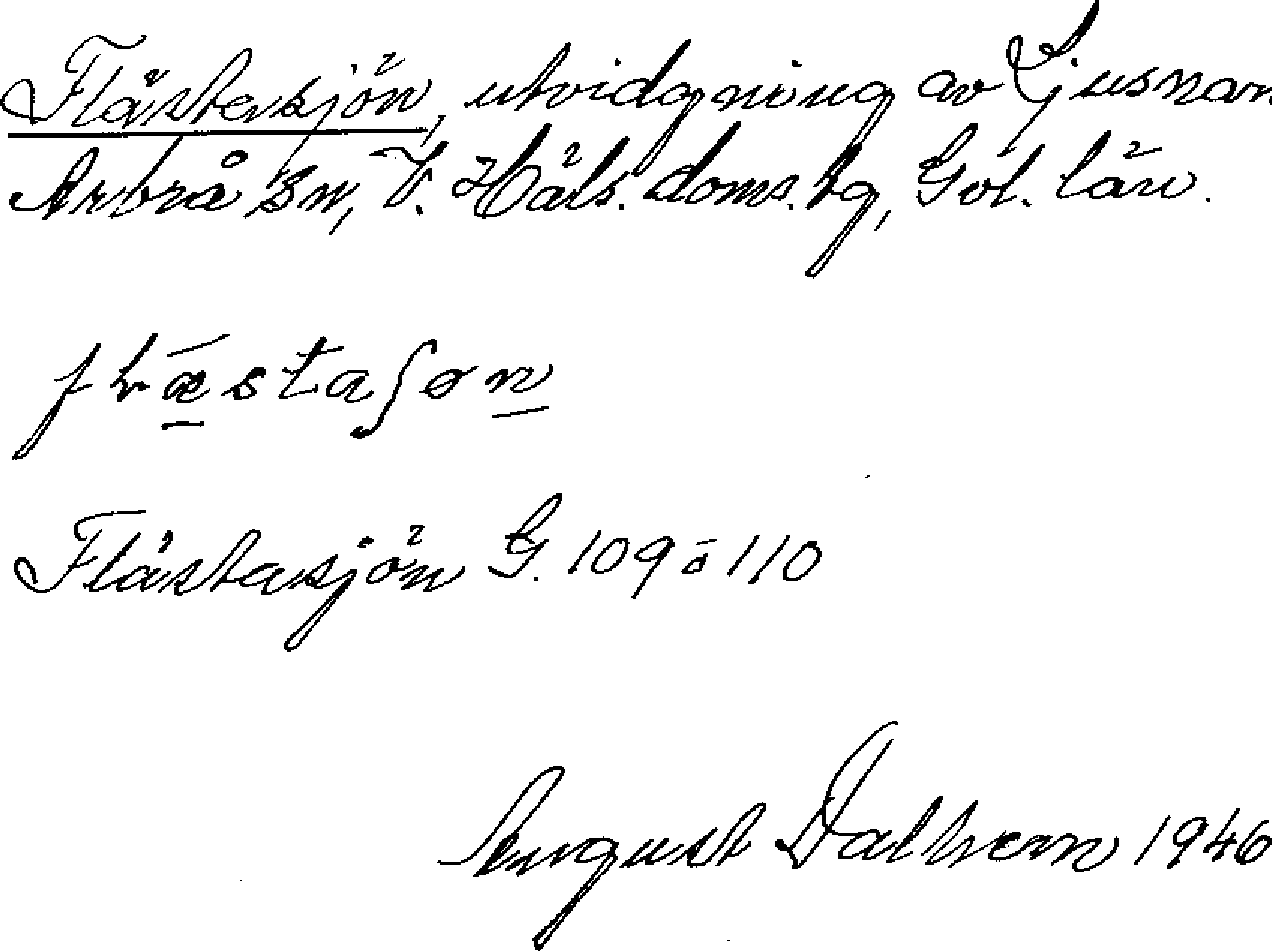 Flästasjön, utvidgning av Ljusnan
Arbrå sn, V. Häls. doms.hg, Gvl. län.
flǣ̠staʃøn̠
Flästasjön G. 109 ö 110
August Dalhem 1946